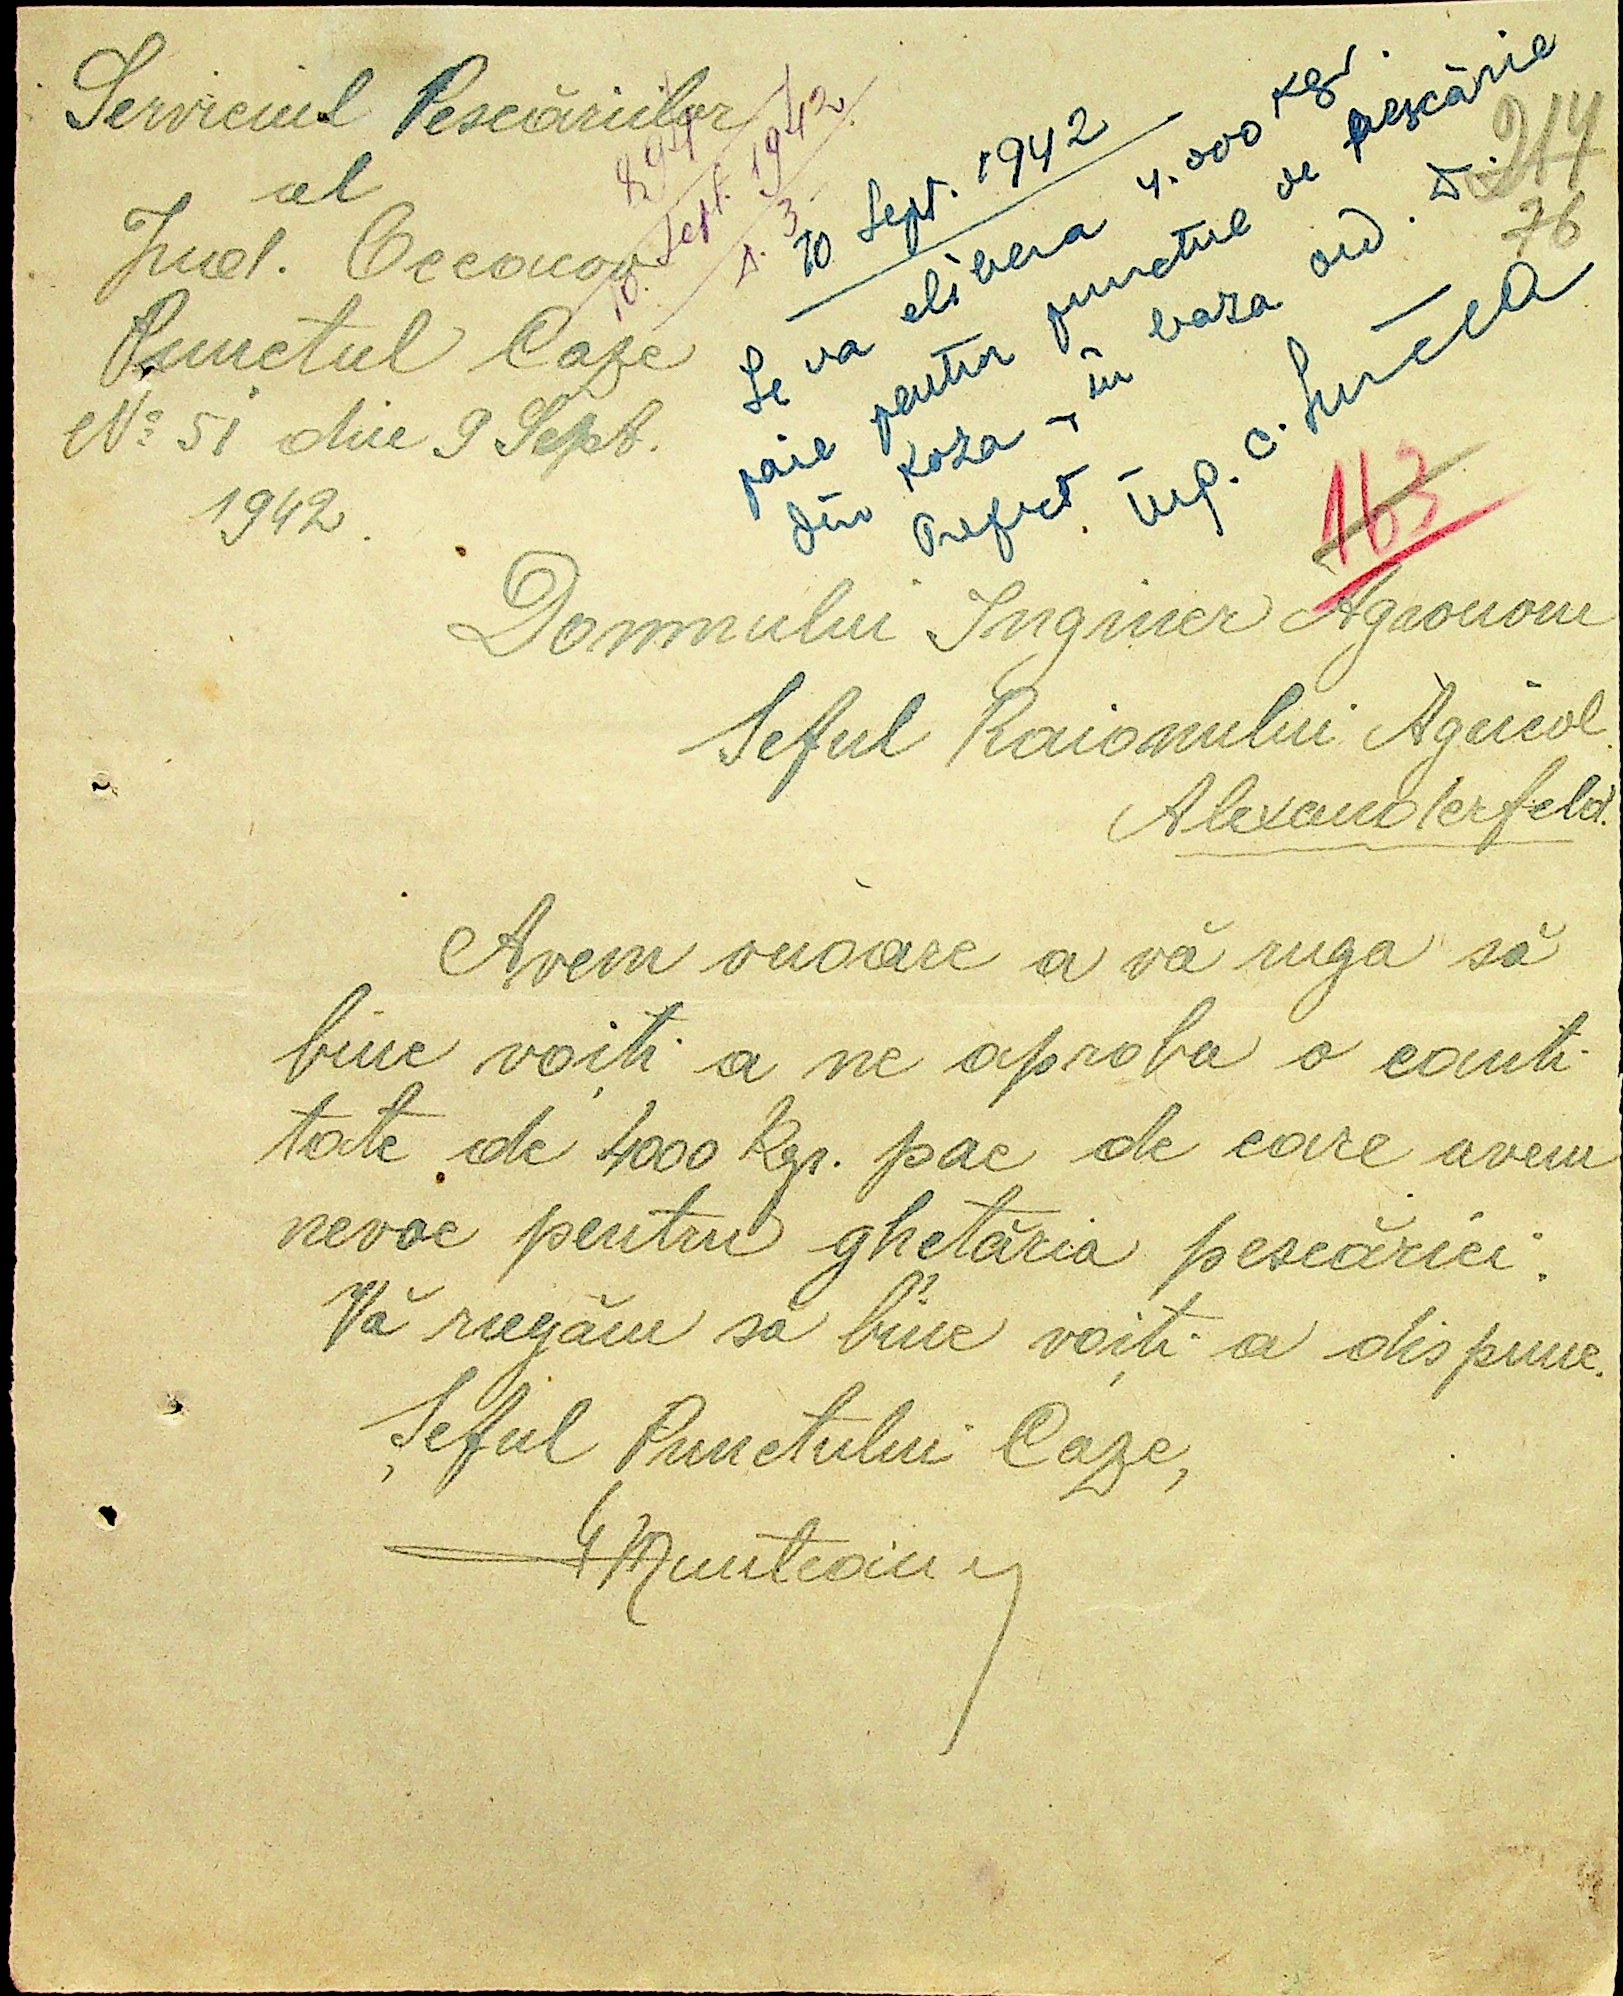 Serviciul Pescăriilor
al
Jud. Oceacov
Punctul Caze
No 51 din 9 Sept.
1942.
10 Sept. 1942
D. 3
10 Sept. 1942
Se va elibera 4.000 kgr.
paie pentru punctul de pescărie
din Koza, în baza ord. D.
Prefect.
Ing. C.
214
76
163
Domnului Inginer Agronom
Seful Raionului Agricol
Alexanderfeld.
Avem onoare a vă ruga să
bine voiți a ne aproba o canti
tate de 4000 Kgr. pae de care avem
nevoe pentru ghetăria pescăriei.
Vă rugăm să bine voiți a dispune.
Șeful Punctului Caze,
Munteanu